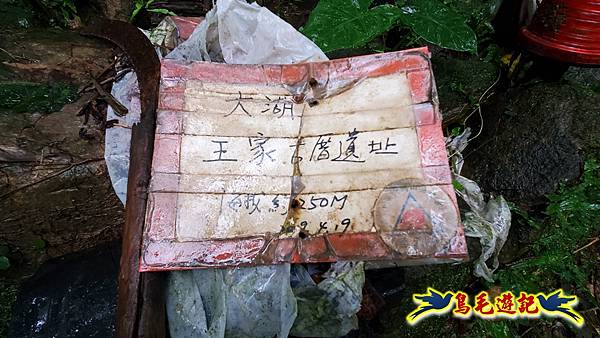 大湖
王家古厝遺址
H 約250M
2019.4.19
鳥毛遊記